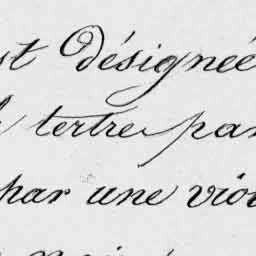 st désignée
tertre par
par une vio